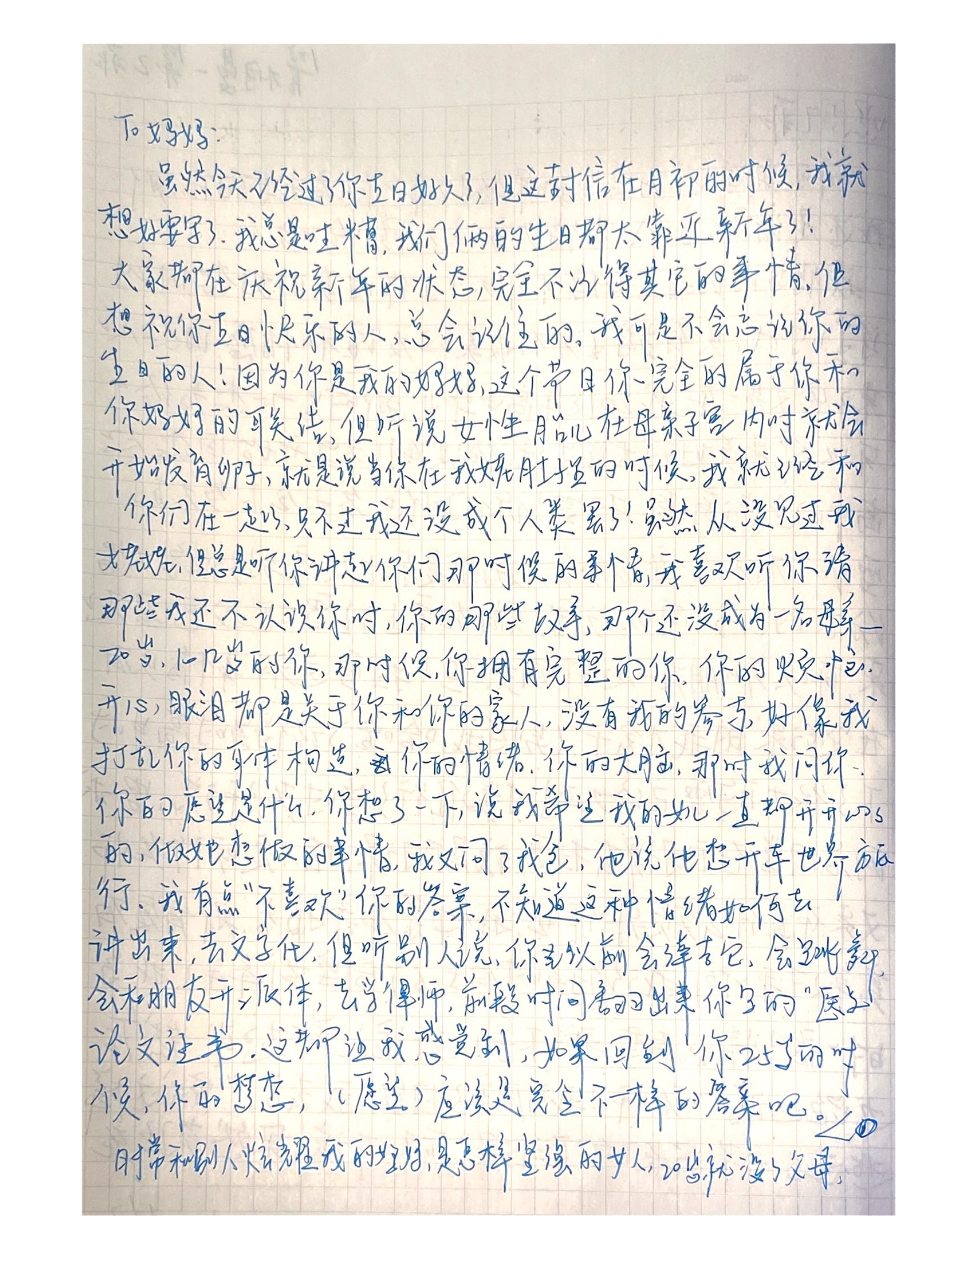 To 妈妈:
虽然今天已经过了你生日好久了,但这封信在月初的时候,我就
想好要写了.我总是吐槽,我们俩的生日都太靠近新年了!
大家都在庆祝新年的状态,完全不记得其它的事情,但
想祝你生日快乐的人,总会记住的。我可是不会忘记你的
生日的人!因为你是我的妈妈,这个节日你完全的属于你和
你妈妈的联结,但听说女性胎儿在母亲子宫内时就会
开始发育卵子,就是说当你在我姥肚子里的时候,我就已经和
你们在一起了,只不过我还没成个人类罢了!虽然从没见过我
姥姥,但总是听你讲起你们那时候的事情,我喜欢听你讲
那些我还不认识你时,你的那些故事,那个还没成为一名母亲—
20岁,10几岁的你,那时候,你拥有完整的你.你的烦恼.
开心,眼泪都是关于你和你的家人,没有我的参与,好像我
打乱你的身体构造,你的情绪.你的大脑,那时我问你.
你的愿望是什么.你想了一下,说我希望我的女儿一直都开开心心
的,做她想做的事情,我又问了我爸,他说他想开车世界
行.我有点"不喜欢"你的答案,不知道这种情绪如何去
讲出来,去文字化,但听别人说,你以前会弹吉它,会
会和朋友开派体,去学律师,前段时间翻出来你写的"医学
论文证书.这都让我感觉到,如果回到你25岁的时
候,你的梦想,(愿望)应该是完全不一样的答案吧。
时常和别人炫耀我的妈妈,是怎样坚强的女人,20岁就没了父母,